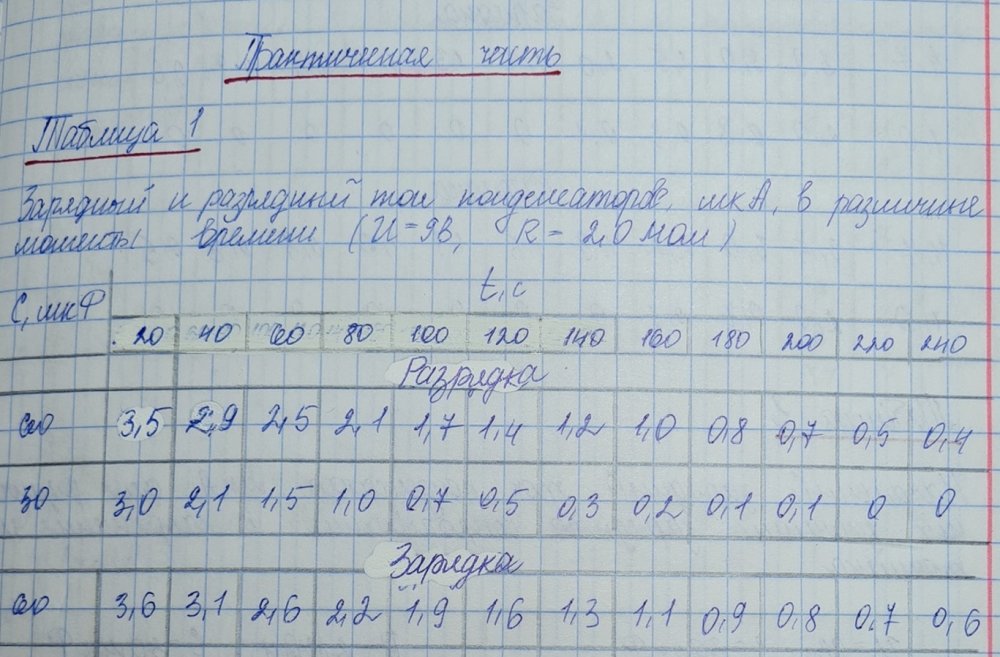 Практичная часть
Таблица 1
Зарядный и разрядный ток конденсаторов, мкА, в различные
моменты времени (U=9В, R=2,0 мом)
C, мкФ t, с
20 40 60 80 100 120 140 160 180 200 220 240
Разрядка
60 3,5 2,9 2,5 2,1 1,7 1,4 1,2 1,0 0,8 0,7 0,5 0,4
30 3,0 2,1 1,5 1,0 0,7 0,5 0,3 0,2 0,1 0,1 0 0
Зарядка
60 3,6 3,1 2,6 2,2 1,9 1,6 1,3 1,1 0,9 0,8 0,7 0,6